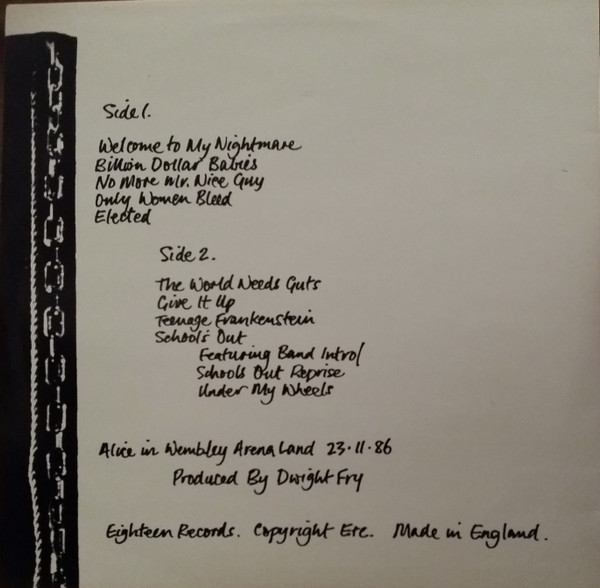 Side 1.
Welcome to My Nightmare
Billion Dollar Babies
No More Mr. Nice Guy
Only Women Bleed
Elected
Side 2.
The World Needs Guts
Give It Up
Teenage Frankenstein
Schools Out
Featuring Band Intro/
Schools Out Reprise
Under My Wheels
Alice in Wembley Arena Land 23·11·86
Produced By Dwight Fry
Eighteen Records. Copyright Etc. Made in England.